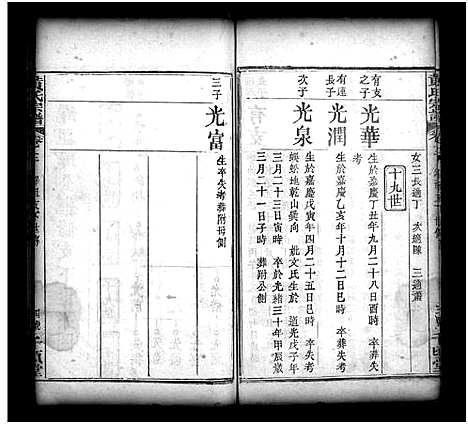 女三長適丁 次適陳 三適蕭
十九世
有亥之子
光華
生於嘉慶丁丑年九月二十八日酉時 卒葬失考
有連長子
光潤
生於嘉慶乙亥年十月十二日巳時 卒葬失考
次子
光泉
生於嘉慶戊寅年四月二十五日巳時 卒失考
蜈蚣地乾山巽向 妣文氏生於道光戊子年
三月二十三日寅時 卒於光緒三十年甲辰歲
三月二十一日子時 葬附公側
三子
光富
生卒失考葬附毋側
黃氏宗譜